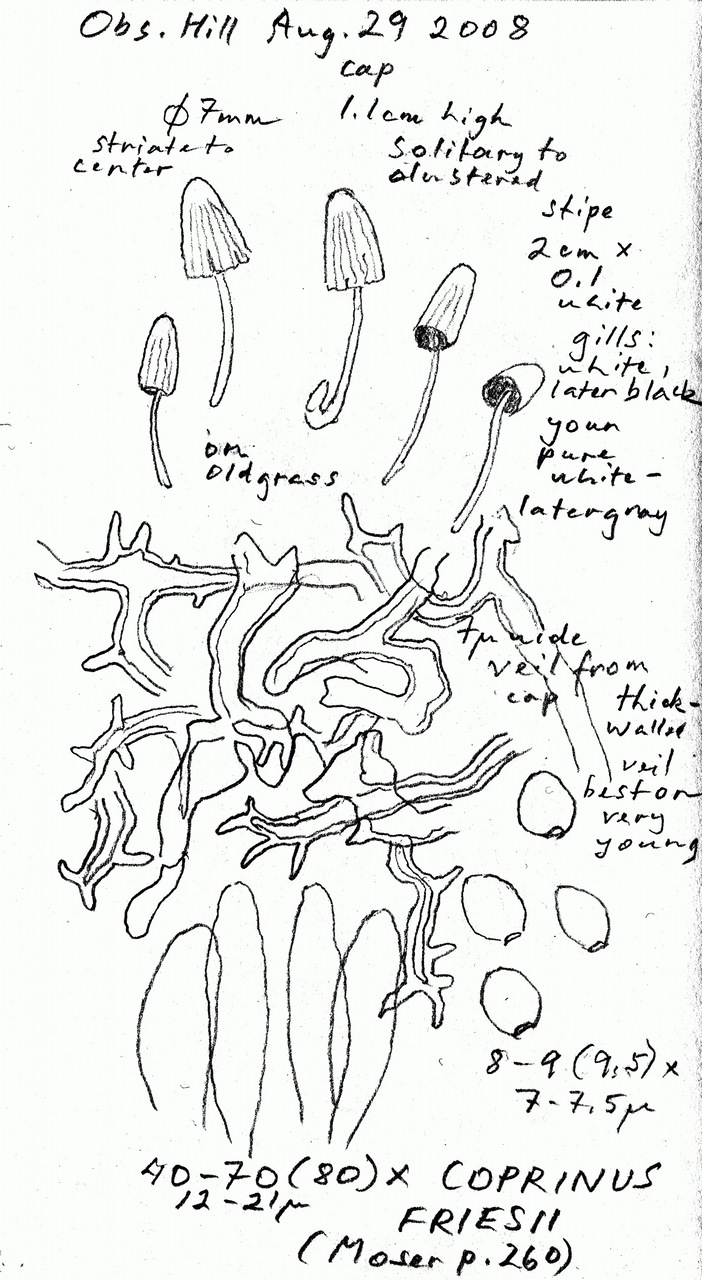 Obs. Hill Aug. 29 2008
cap
φ 7mm
1.1cm high
striate to
center
Solitary to
clustered
stipe
2cm x
0.1
white
gills:
white,
later black
youn
pure
white -
later gray
on
old grass
7μ wide
veil from
cap
thick-
walled
veil
best on
very
young
8-9 (9,5) x
7-7,5μ
40-70(80) x
12-21μ
COPRINUS
FRIESII
(Moser p.260)